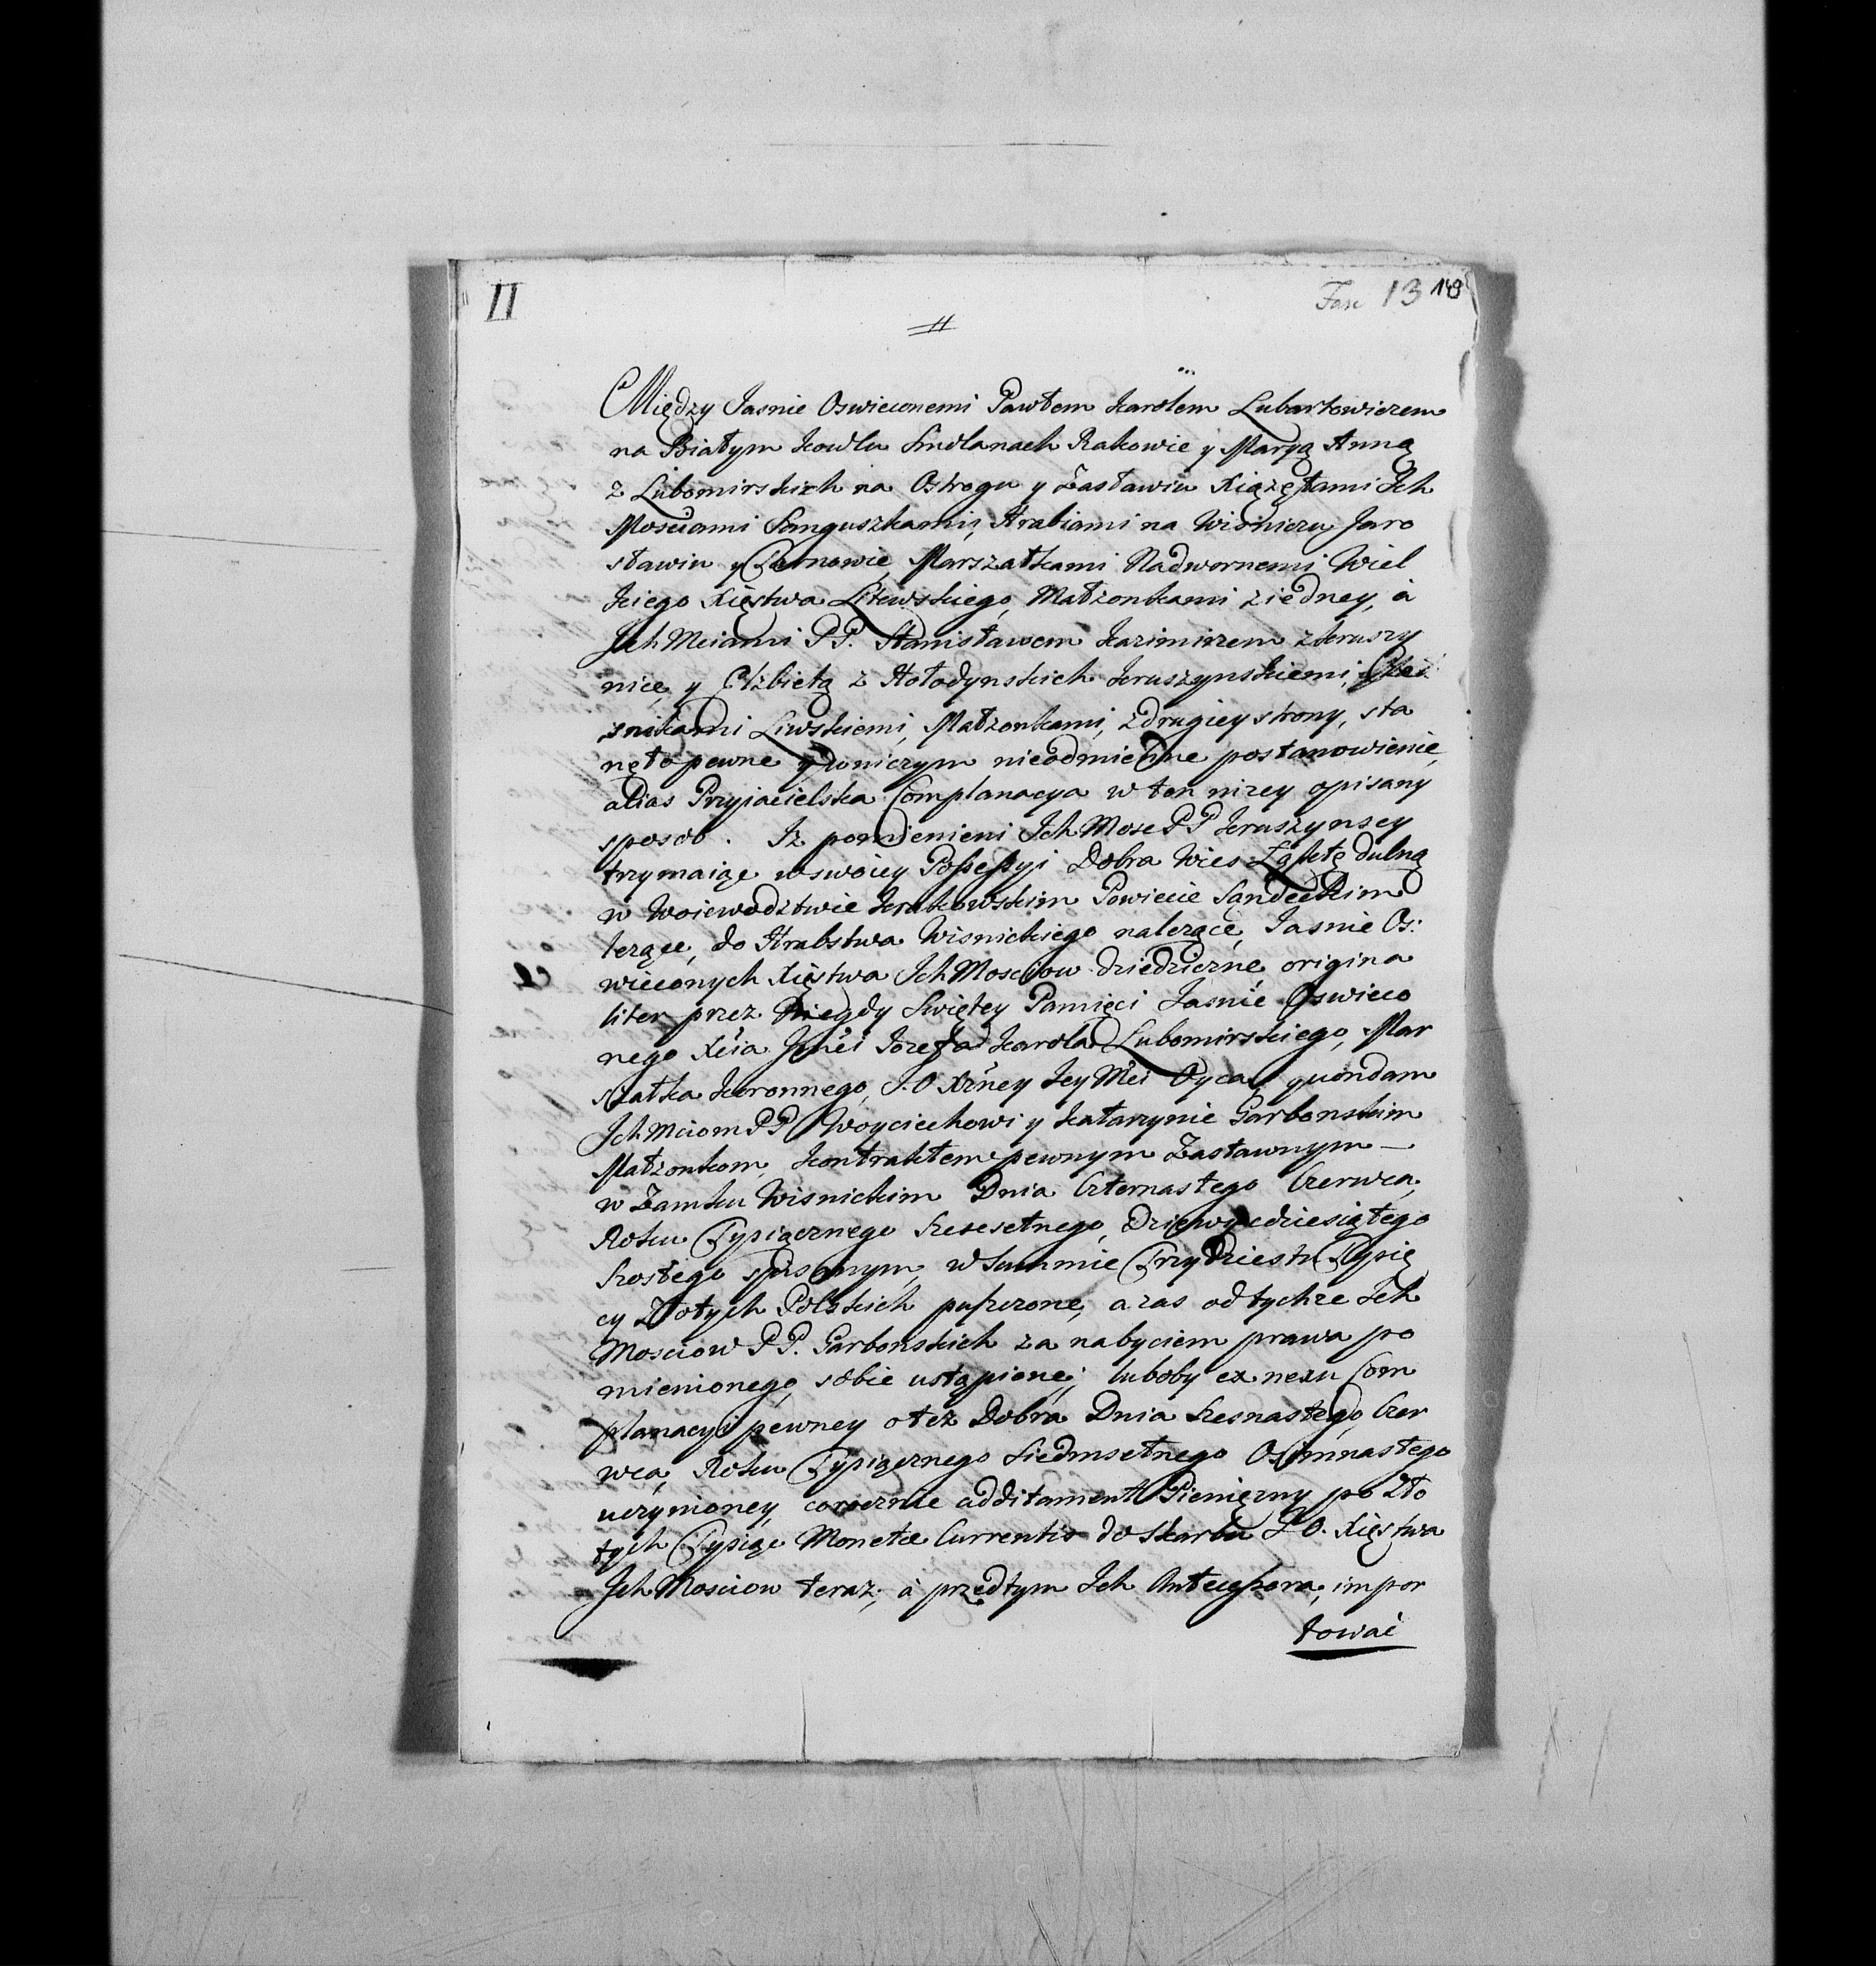 II
Fasc 13 143
Między Jasnie Oswieconemi Pawłem Karolem Lubartowiczem
na Białym Kowlu Smolanach Rakowie y Maryą Anną
z Lubomirskich na Ostrogu y Zasławiu Xiążętami Ich
Mosciami Sanguszkami, Hrabiami na Wisniczu Jaro
sławiu y Tarnowie, Marszałkami Nadwornemi Wiel
kiego Xięstwa Litewskiego, Małzonkami ziedney, à
Jch Mciami PP. Stanisławem Kazimirzem zKruszy
nice, y Elzbietą z Hołodynskich Kruszynskiemi,
znikami Liwskiemi, Małzonkami, zdrugiey strony, sta
nęło pewne y wniczym nieodmienne postanowienie,
alias Przyiacielska Complanacya w ten nizey opisany
sposob. Iz pomienieni Ich Mosc PP Kruszynscy
trzymaiąc wswoiey Possessyi Dobra Wies Łąktę dulną
w Woiewodztwie Krakowskim Powiecie Sandeckim
lezące, do Hrabstwa Wisnickiego nalezące, Iasnie Os:
wieconych Xięstwa Ich Mosciow dziedziczne, origina
liter przez Niegdy Swiętey Pamięci Jasnie Oswieco
nego Xcia Jmci Jozefa Karola Lubomirskiego, Mar
szałka Koronnego, J.O Xzney Jey Mci Oyca, quondam
Jch Mciom PP Woyciechowi y Katarzynie Garbonskim
Małzonkom, Kontraktem pewnym Zastawnym —
w Zamku Wisnickim Dnia Czternastego Czerwca,
Roku Tysiącznego Szescsetnego, Dziewięcdziesiątego
Szostego spisanym, w Summie Trzydziestu Tysię
cy Złotych Polskich puszczone, a zas od tychze Ich
Mosciow PP. Garbonskich za nabyciem prawa po
mienionego, sobie ustąpione; luboby ex nexu Com
planacyi pewney o tez Dobra Dnia Szesnastego, Czer
wca, Roku Tysiącznego Siedmsetnego Osimnastego
uczynioney, corocznie additament Pienięzny po Zło
tych Tysiąc Moneta Currentis do Skarbu J O. Xięstwa
Jch Mosciow teraz, à przedtym Ich Antecessora, impor
tować